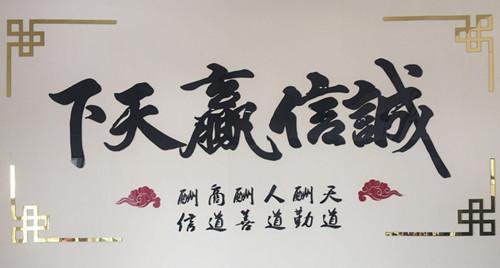 誠信贏天下
天道酬勤
人道酬善
商道酬信